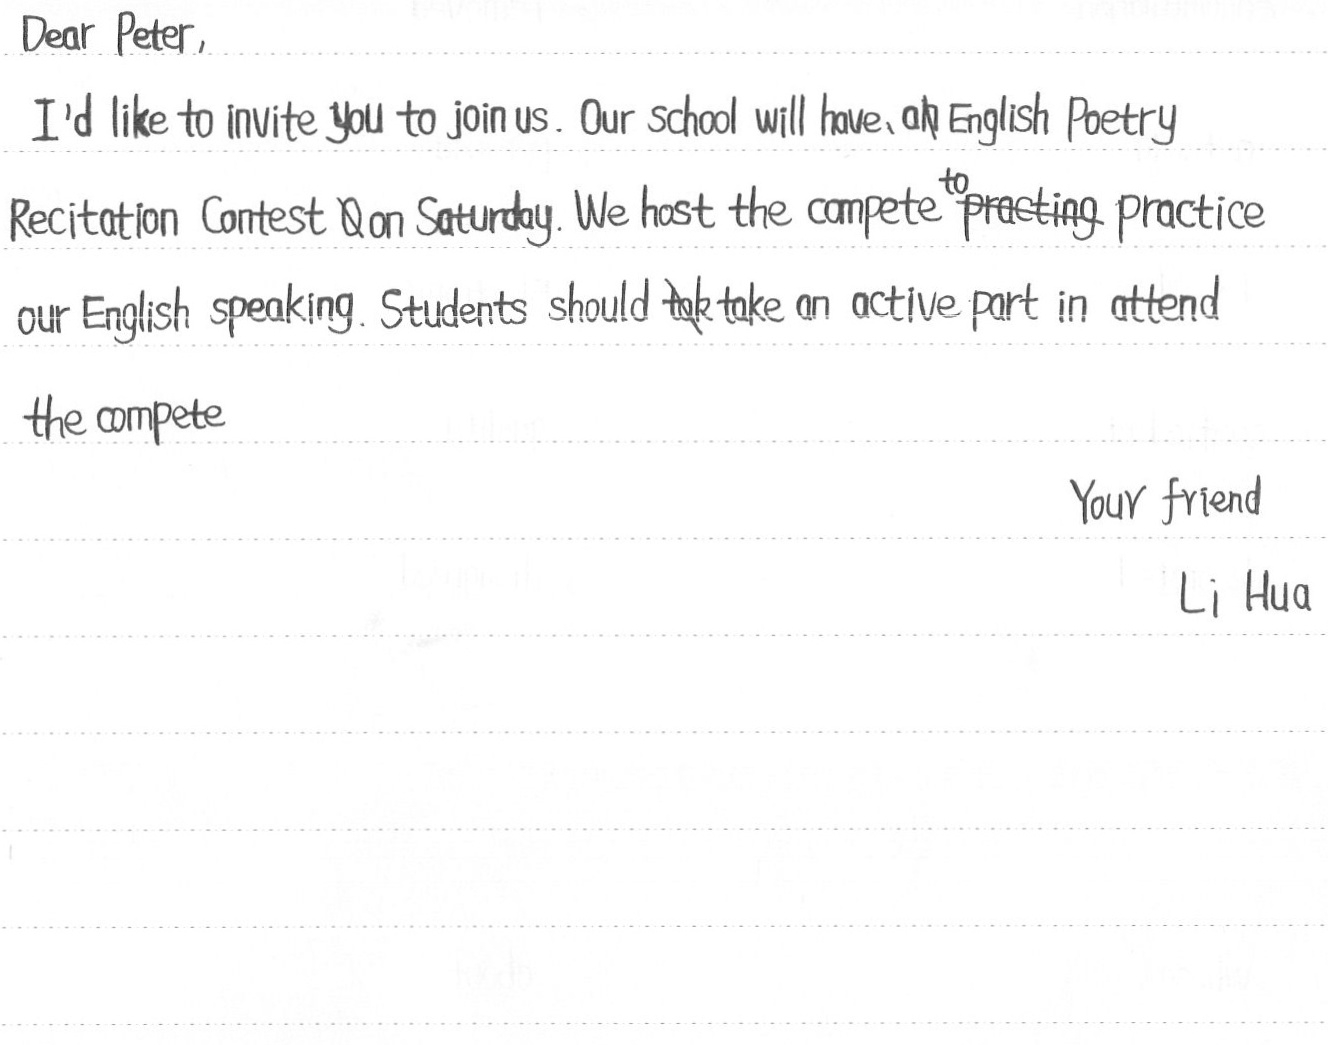 Dear Peter,
I'd like to invite you to join us. Our school will have an English Poetry
Recitation Contest on Saturday. We host the compete to practice
our English speaking. Students should take an active part in attend
the compete
Your friend
Li Hua